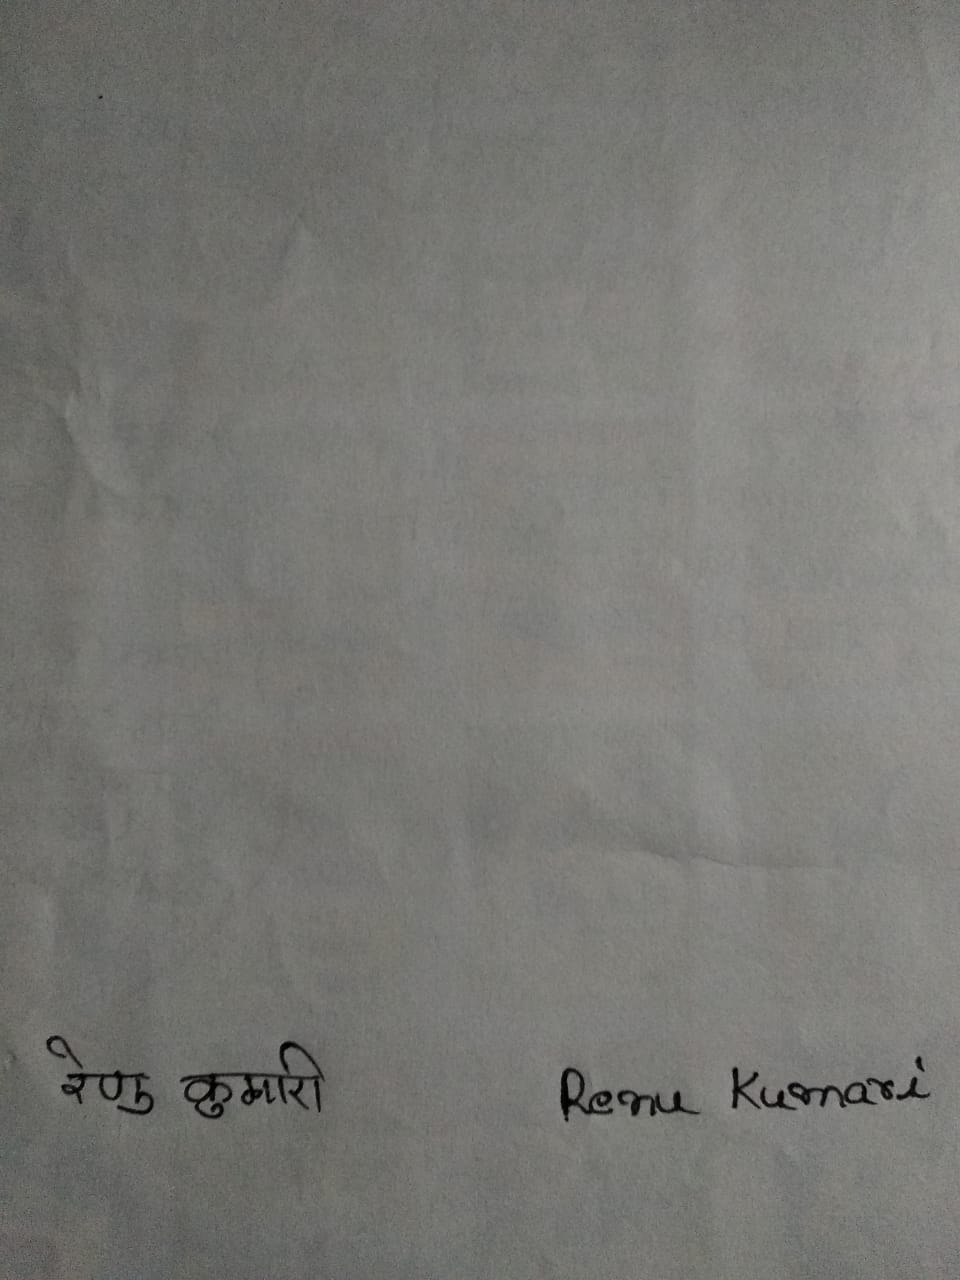 रेणु कुमारी Renu Kumari